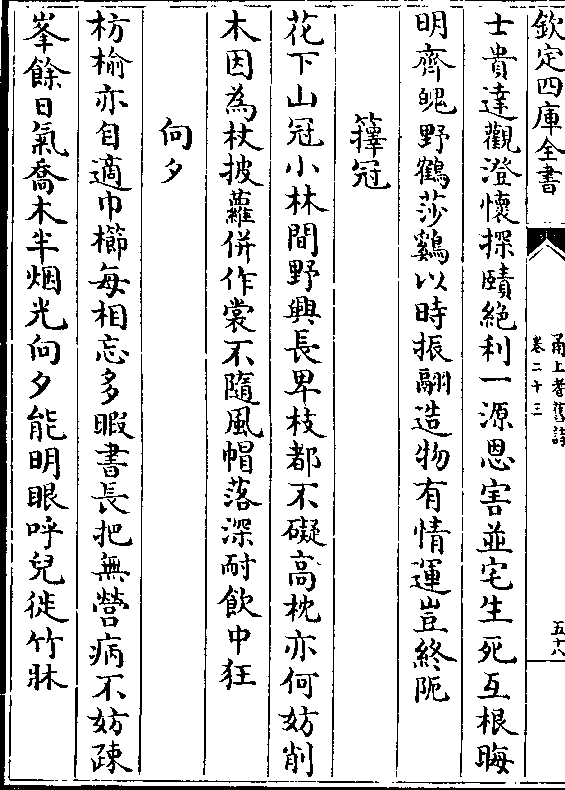 欽定四庫全書
甬上耆舊詩
卷二十三
五十八
士貴達觀澄懷探賾絶利一源恩害並宅生死互根晦
明齊魄野鶴莎鷄以時振翮造物有情運豈終阨
籜冠
花下山冠小林間野興長卑枝都不礙高枕亦何妨削
木因為杖披蘿併作裳不隨風帽落深耐飲中狂
向夕
枋榆亦自適巾櫛每相忘多暇書長把無營病不妨疎
峯餘日氣喬木半烟光向夕能明眼呼兒徙竹牀